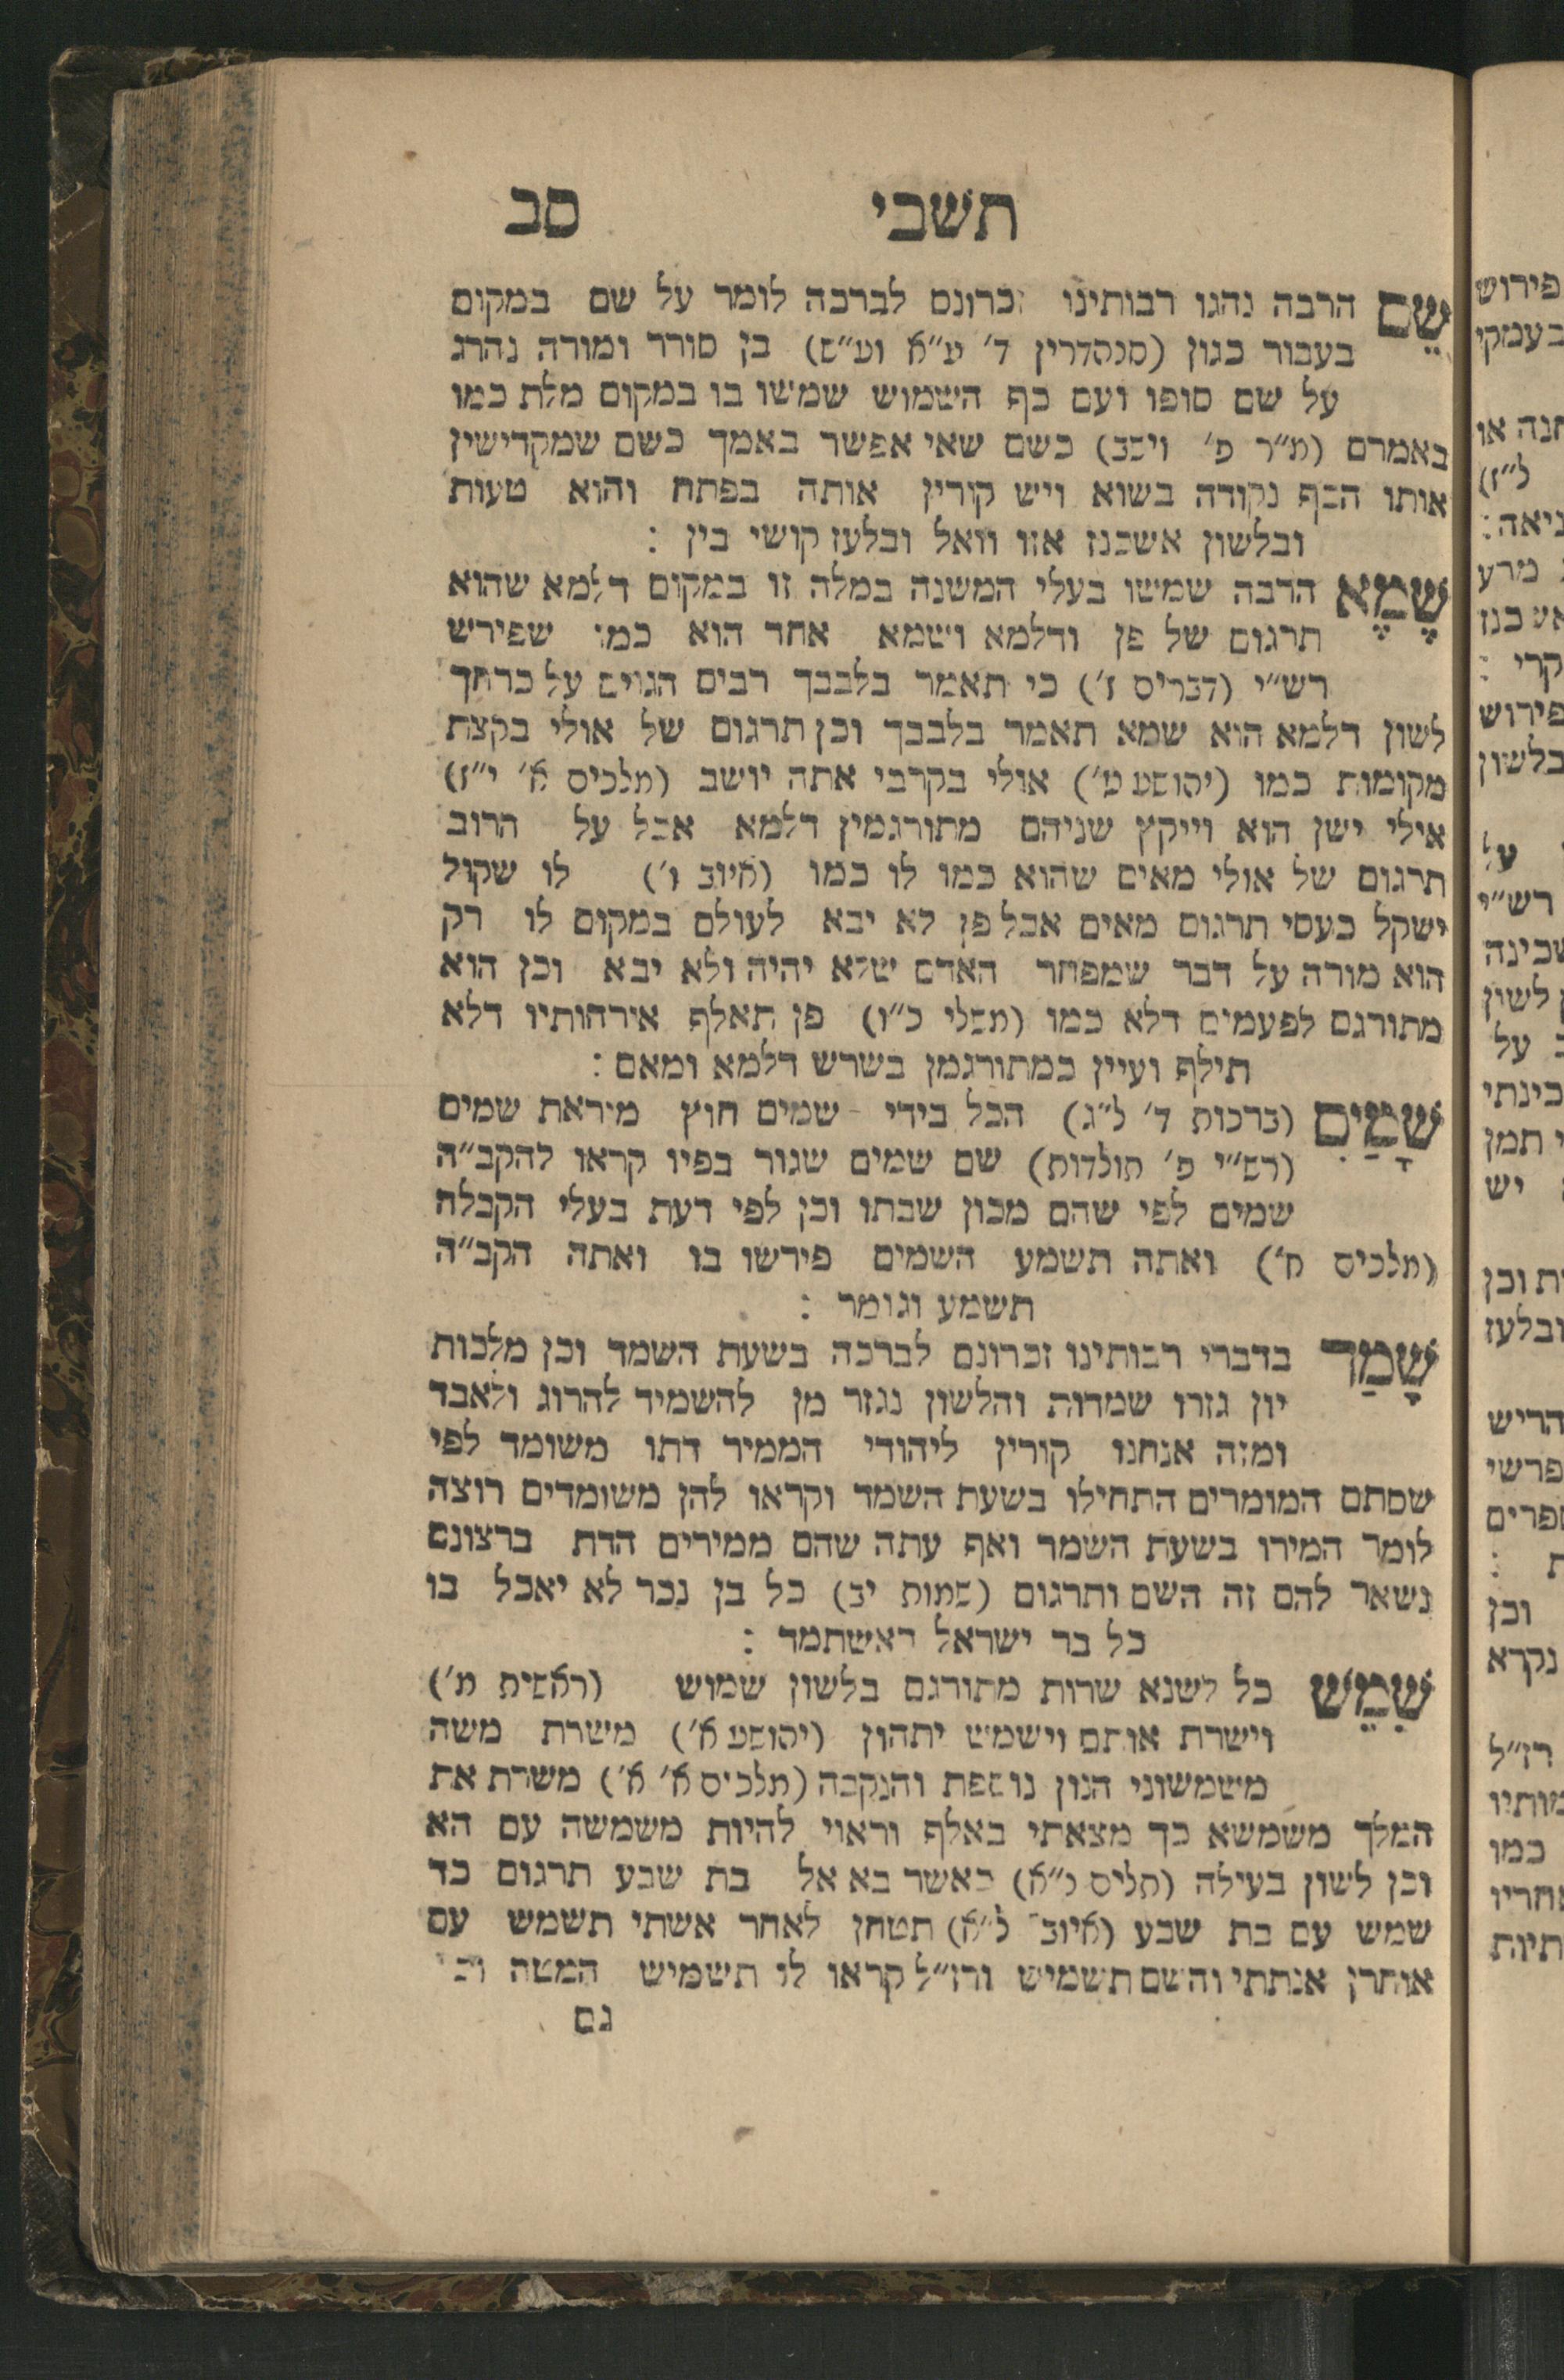 תשבי סב
שֵׁם הרבה נהגו רבותינו זכרונם לברכה לומר על שם במקום
בעבור כגון (סנהדרין ד׳ ע״א וע״ש) בן סורר ומורה נהרג
על שם סופו ועם כף השמוש שמשו בו במקום מלת כמו
באמרם (מ״ר פ׳ וישב) כשם שאי אפשר באמך כשם שמקדישין
אותו הכף נקודה בשוא ויש קורין אותה בפתח והוא טעות
ובלשון אשכנז אזו וואל ובלעז קושי בין :
שֶׁמֶּא הרבה שמשו בעלי המשנה במלה זו במקום דלמא שהוא
תרגום של פן ודלמא ושמא אחד הוא כמו שפירש
רש״י (דברים ז׳) כי תאמר בלבבך רבים הגוים על כרחך
לשון דלמא הוא שמא תאמר בלבבך וכן תרגום של אולי בקצת
מקומות כמו (יהושע ט׳) אולי בקרבי אתה יושב (מלכים א׳ י״ז)
אולי ישן הוא וייקץ שניהם מתורגמין דלמא אבל על הרוב
תרגום של אולי מאים שהוא כמו לו כמו (איוב ו׳) לו שקול
ישקל כעסי תרגום מאים אבל פן לא יבא לעולם במקום לו רק
הוא מורה על דבר שמפחד האדם שלא יהיה ולא יבא וכן הוא
מתורגם לפעמים דלא כמו (משלי כ״ו) פן תאלף אורחותיו דלא
תילף ועיין במתורגמן בשרש דלמא ומאם :
שָׁמַיִם (ברכות ד׳ ל״ג) הכל בידי שמים חוץ מיראת שמים
(רש״י פ׳ תולדות) שם שמים שגור בפיו קראו להקב״ה
שמים לפי שהם מכון שבתו וכן לפי דעת בעלי הקבלה
(מלכים ח׳) ואתה תשמע השמים פירשו בו ואתה הקב״ה
תשמע וגומר :
שָׁמַד בדברי רבותינו זכרונם לברכה בשעת השמד וכן מלכות
יון גזרו שמדות והלשון נגזר מן להשמיד להרוג ולאבד
ומזה אנחנו קורין ליהודי הממיר דתו משומד לפי
שסתם המומרים התחילו בשעת השמד וקראו להן משומדים רוצה
לומר המירו בשעת השמד ואף עתה שהם ממירים הדת ברצונם
נשאר להם זה השם ותרגום (שמות יב) כל בן נכר לא יאכל בו
כל בר ישראל דאשתמד :
שִׁמֵּשׁ כל לשנא שרות מתורגם בלשון שמוש (ראשית מ׳)
וישרת אותם וישמש יתהון (יהושע א׳) משרת משה
משמשוני הנון נוספת והנקבה (מלכים א׳ א׳) משרת את
המלך משמשא כך מצאתי באלף וראוי להיות משמשה עם הא
וכן לשון בעילה (תלים נ״א) כאשר בא אל בת שבע תרגום כד
שמש עם בת שבע (איוב ל״א) תטחן לאחר אשתי תשמש עם
אוחרן אנתתי והשם תשמיש ורז״ל קראו לו תשמיש המטה
גם